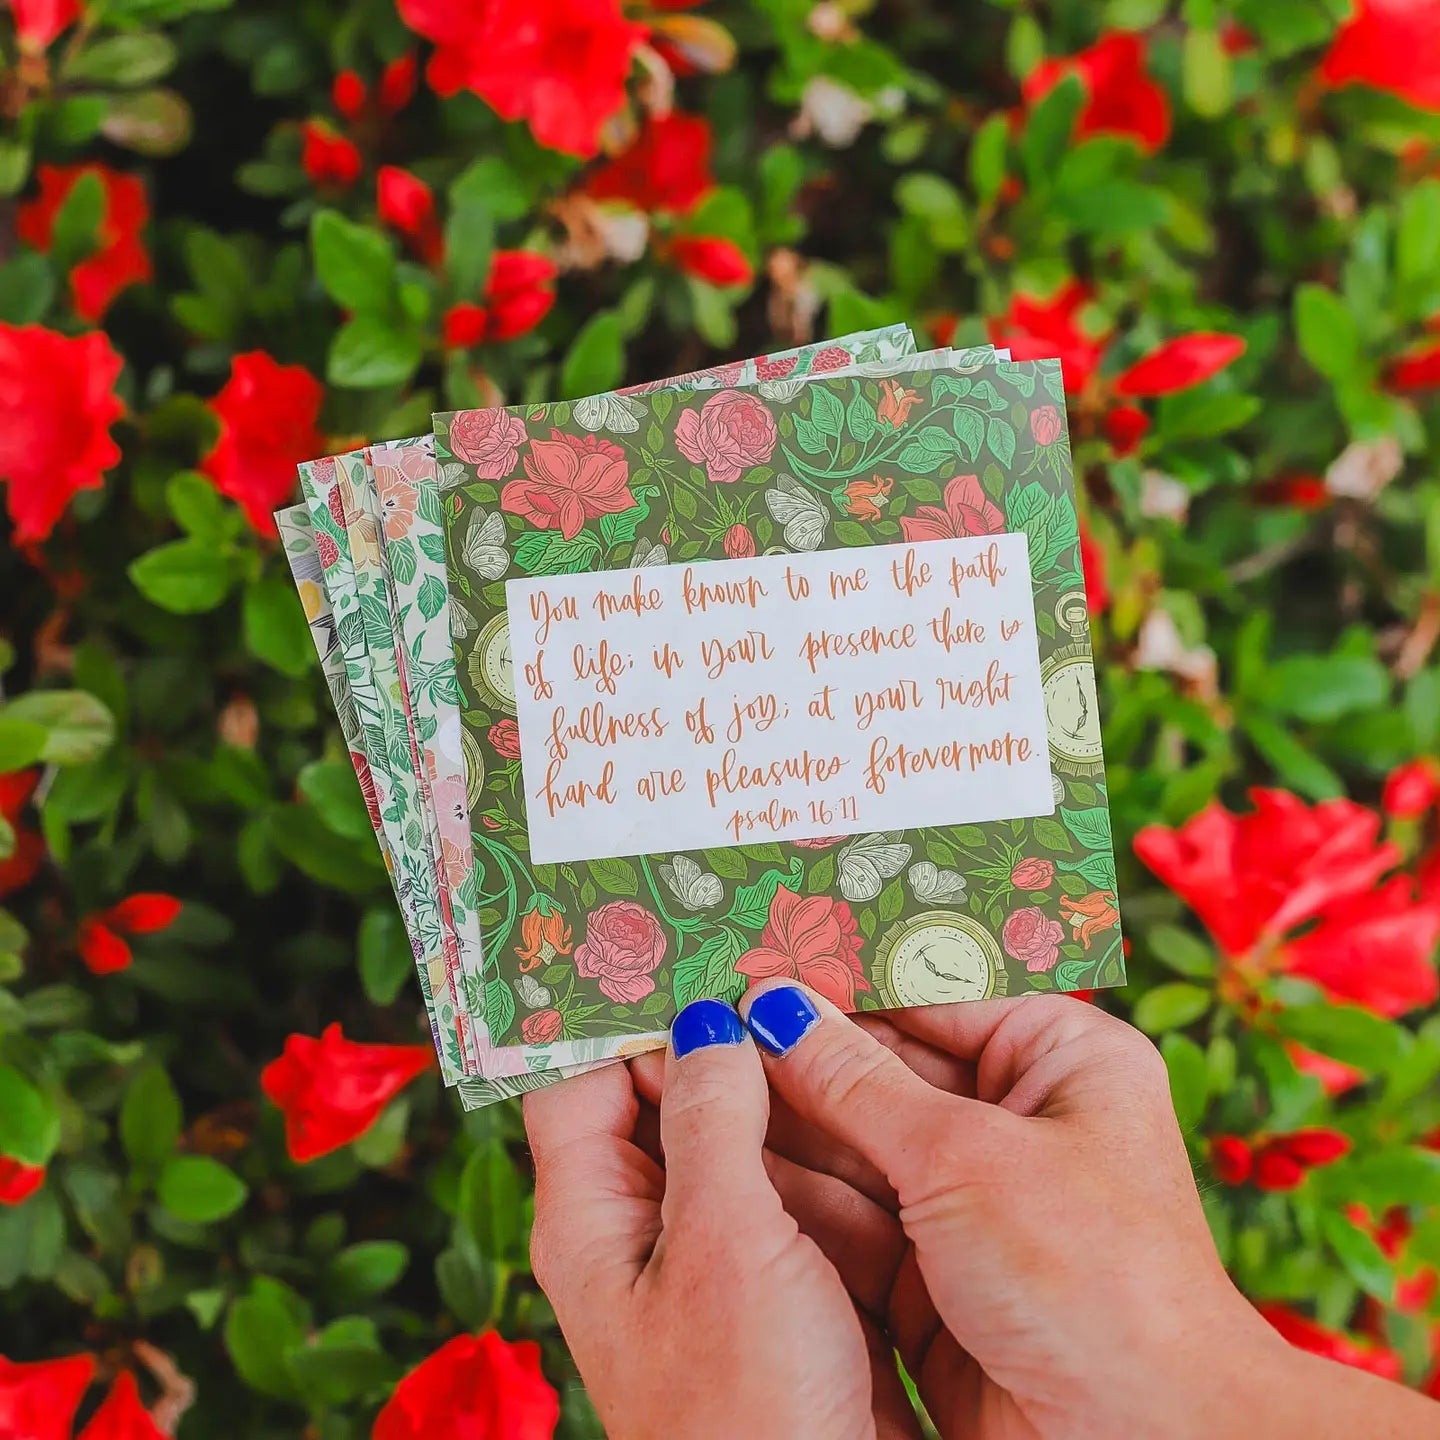 You make known to me the path
of life; in your presence there is
fullness of joy; at your right
hand are pleasures forevermore.
psalm 16:11